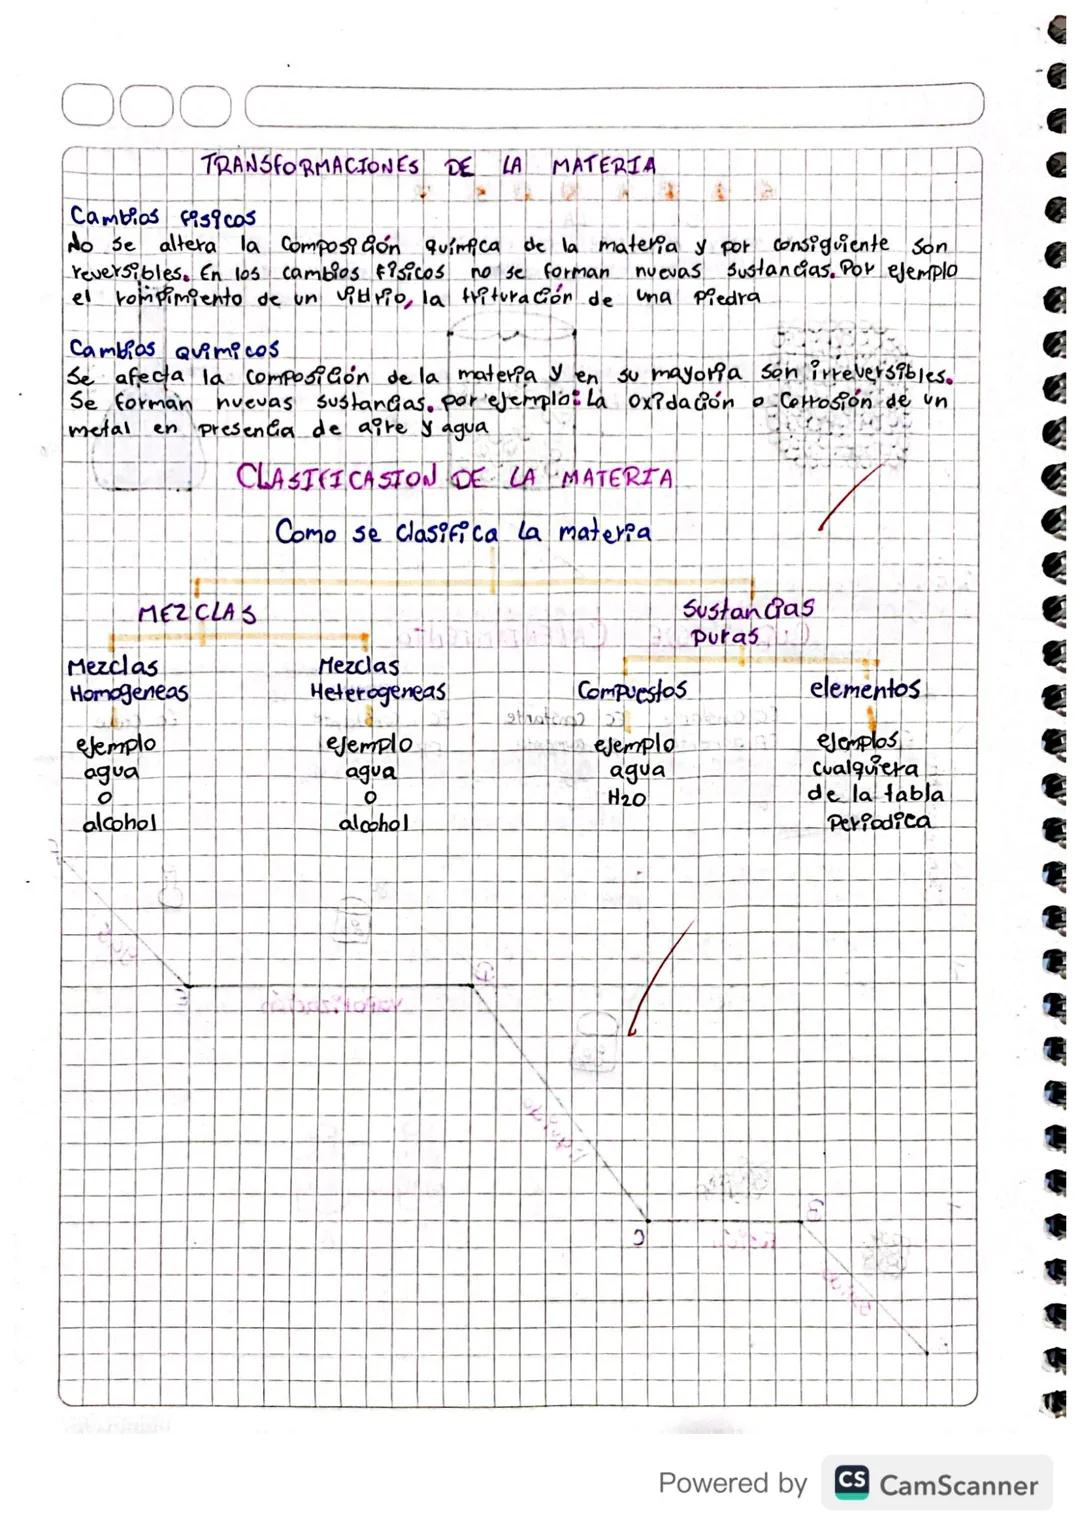 TRANSFORMACIONES DE LA MATERIA
Cambios fisicos
No se altera la composición química de la materia y por consiguiente son
reversibles. En los cambios fisicos no se forman nuevas sustancias. Por ejemplo
el rompimiento de un vidrio, la trituración de una piedra
Cambios quimicos
Se afecta la composición de la materia y en su mayoria son irreversibles.
Se forman nuevas sustancias. por ejemplo: La oxidación o corrosión de un
metal en presencia de aire y agua
CLASIFICASION DE LA MATERIA
Como se clasifica la materia
MEZCLAS
Sustancias
puras
Mezclas
Homogeneas
Mezclas
Heterogeneas
Compuestos
elementos
ejemplo
agua
o
alcohol
ejemplo
agua
o
alcohol
ejemplo
agua
H2O
ejemplos
cualquiera
de la tabla
Periodica
vaporización
Powered by CS CamScanner